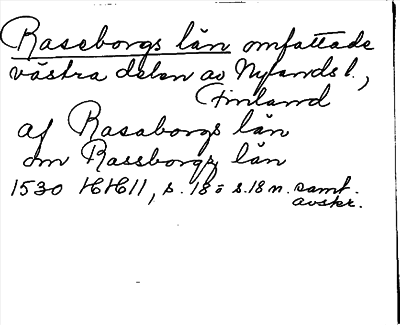 Raseborgs län omfattade
västra delen av Nylands l.,
Finland
af Rasaborgs län
om Rassborgz län
1530 HH 11, s. 18 = s. 18 n. samt.
avskr.